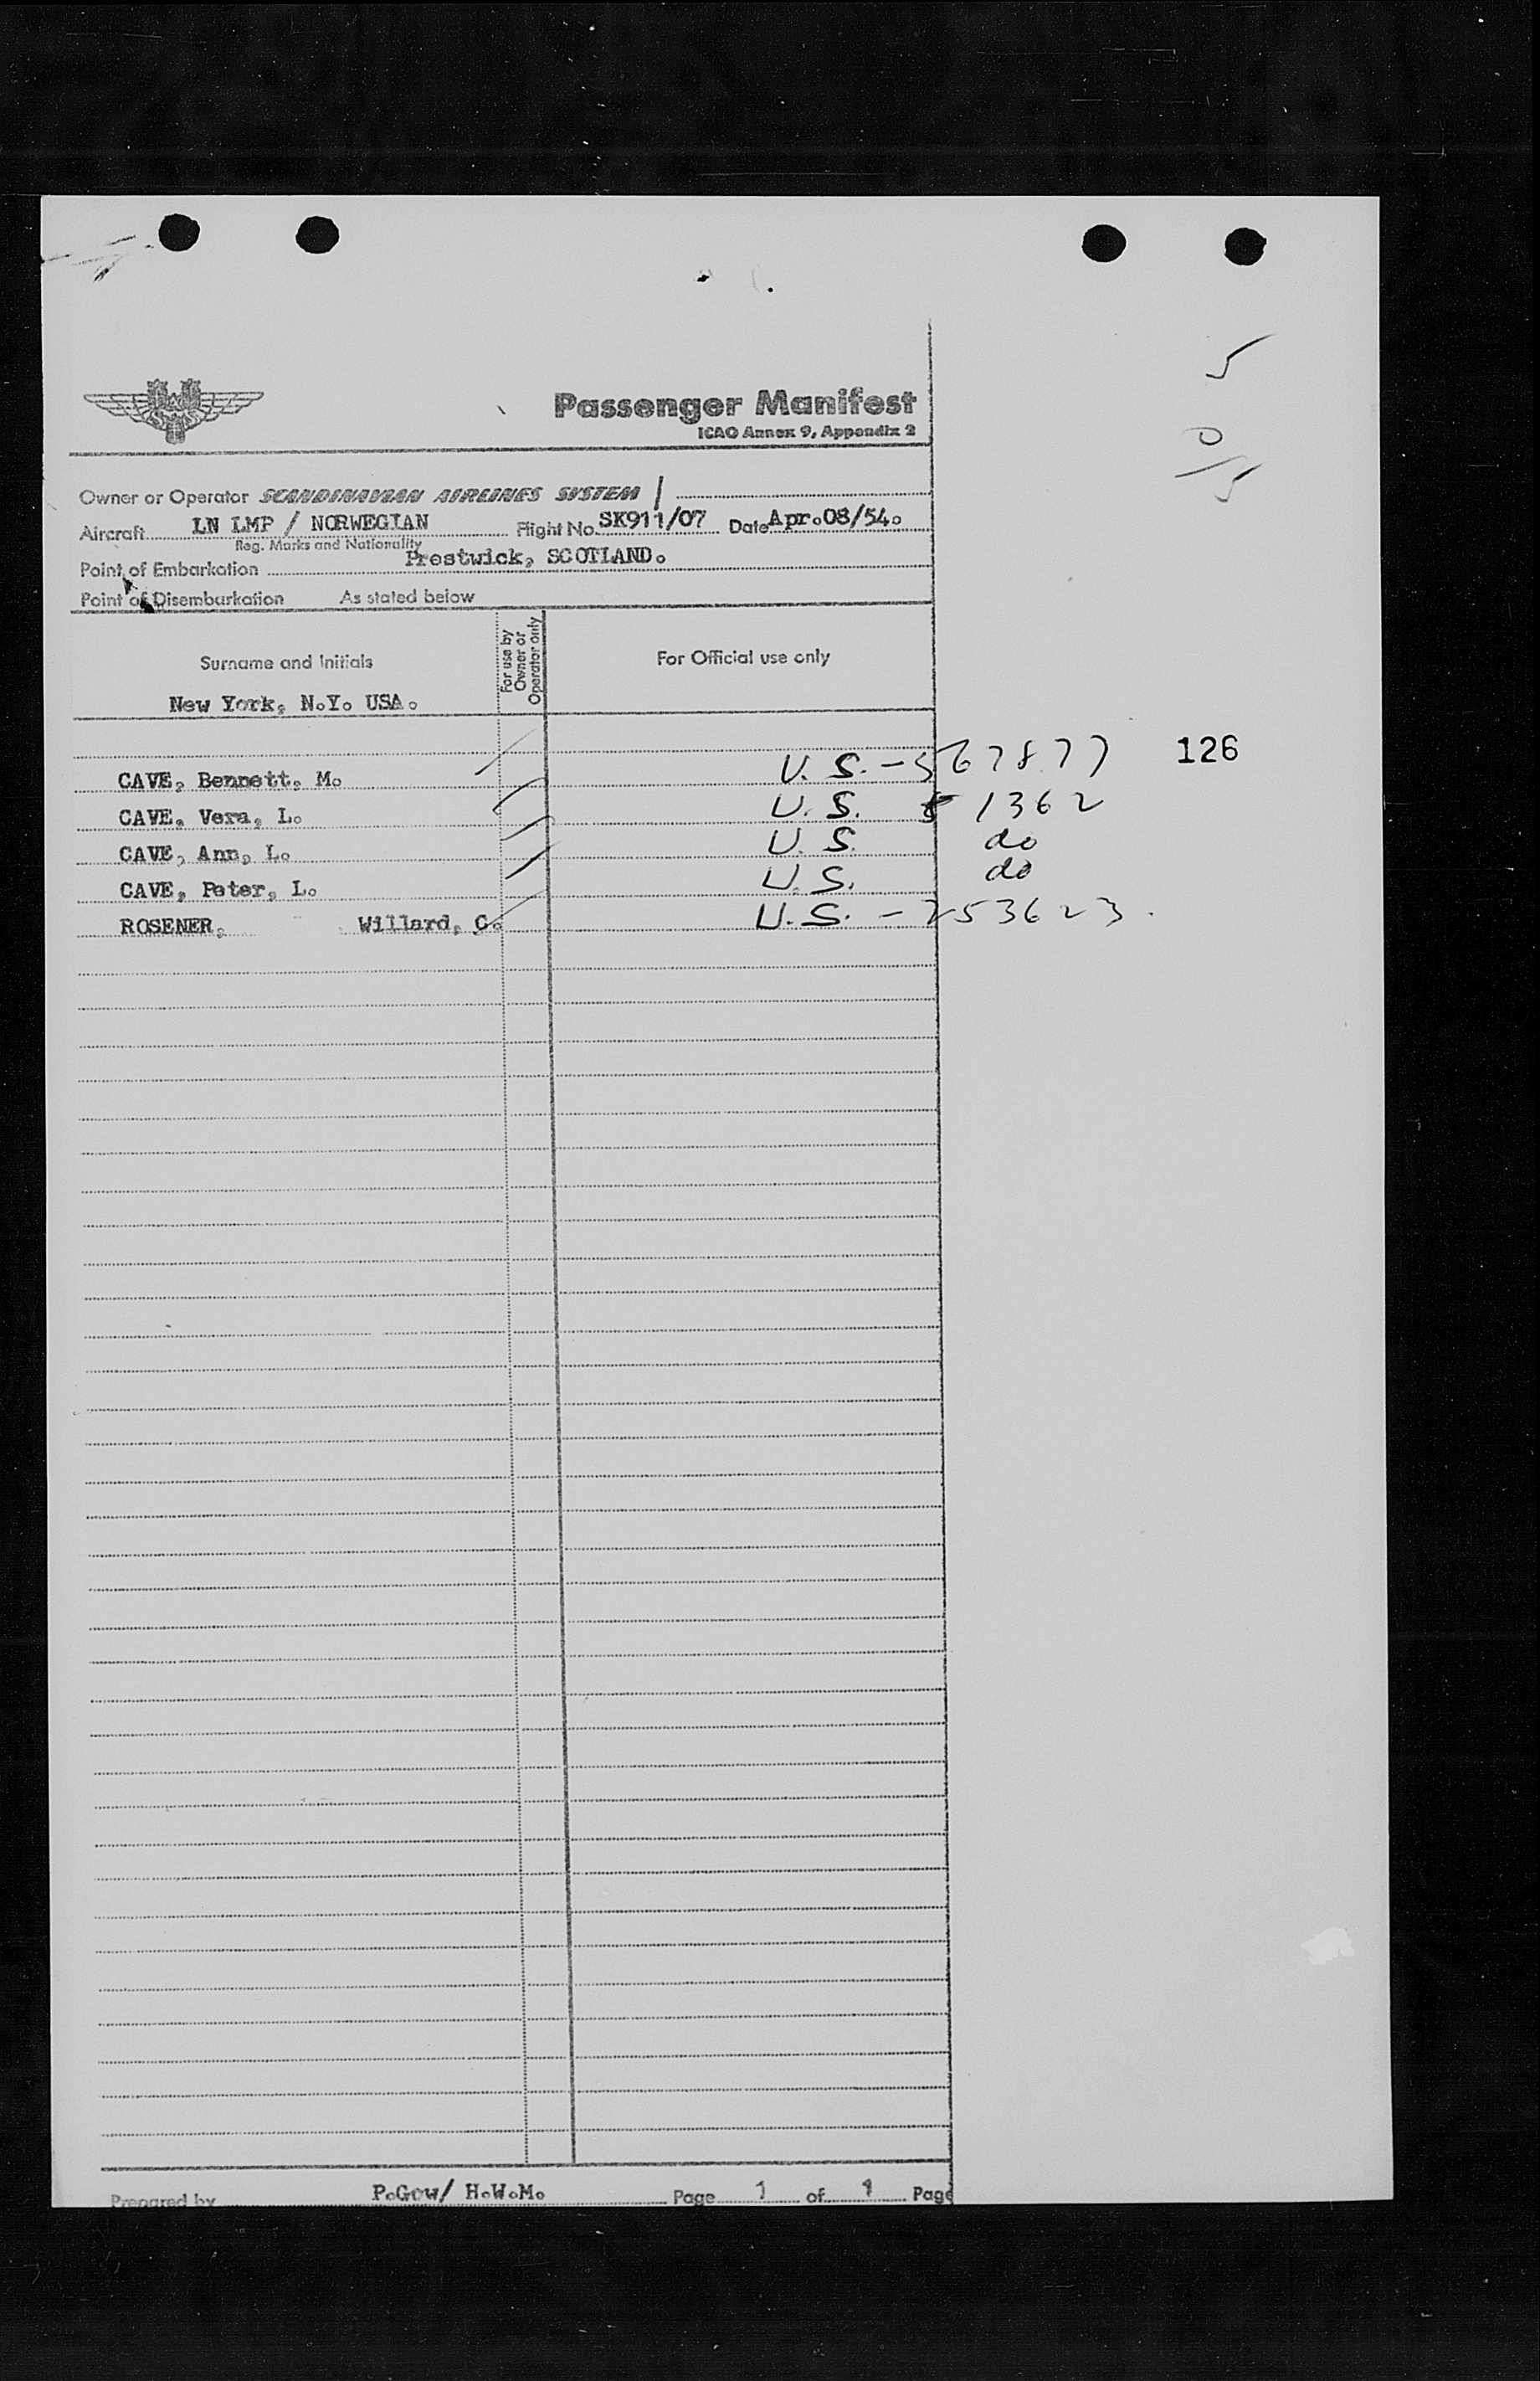 5
0
5
Passenger Manifest
ICAO Annex 9, Appendix 2
Owner or Operator SCANDINAVIAN AIRLINES SYSTEM
Aircraft LN LMP / NORWEGIAN Flight No. SK911/07 Date Apr.08/54.
Reg. Marks and Nationality
Point of Embarkation Prestwick, SCOTLAND.
Point of Disembarkation As stated below
Surname and Initials For use by Owner or Operator only For Official use only
New York, N.Y. USA.
CAVE, Bennett, M. U.S. - 367877 126
CAVE, Vera, L. U.S. 51362
CAVE, Ann, L. U.S. do
CAVE, Peter, L. U.S. do
ROSENER, Willard, C. U.S. - 253623.
Prepared by P.Gow/ H.W.M. Page 1 of 1 Page